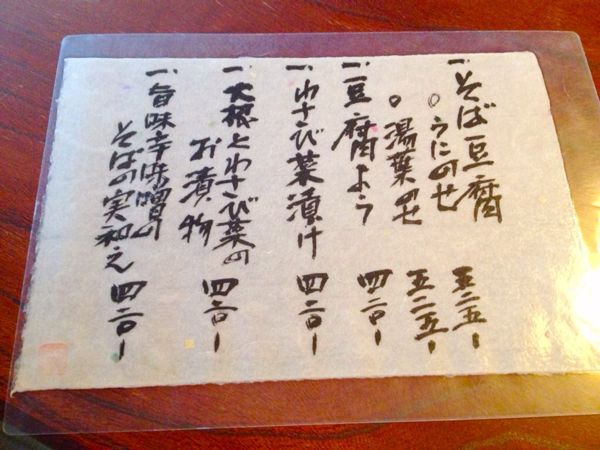 一、そば豆腐
○うにのせ 五二五-
○湯葉のせ 五二五-
一、豆腐よう 四二〇-
一、わさび菜漬け 四二〇-
一、大根とわさび菜の
お漬物 四二〇-
一、旨味辛味噌の
そばの実和え 四二〇-